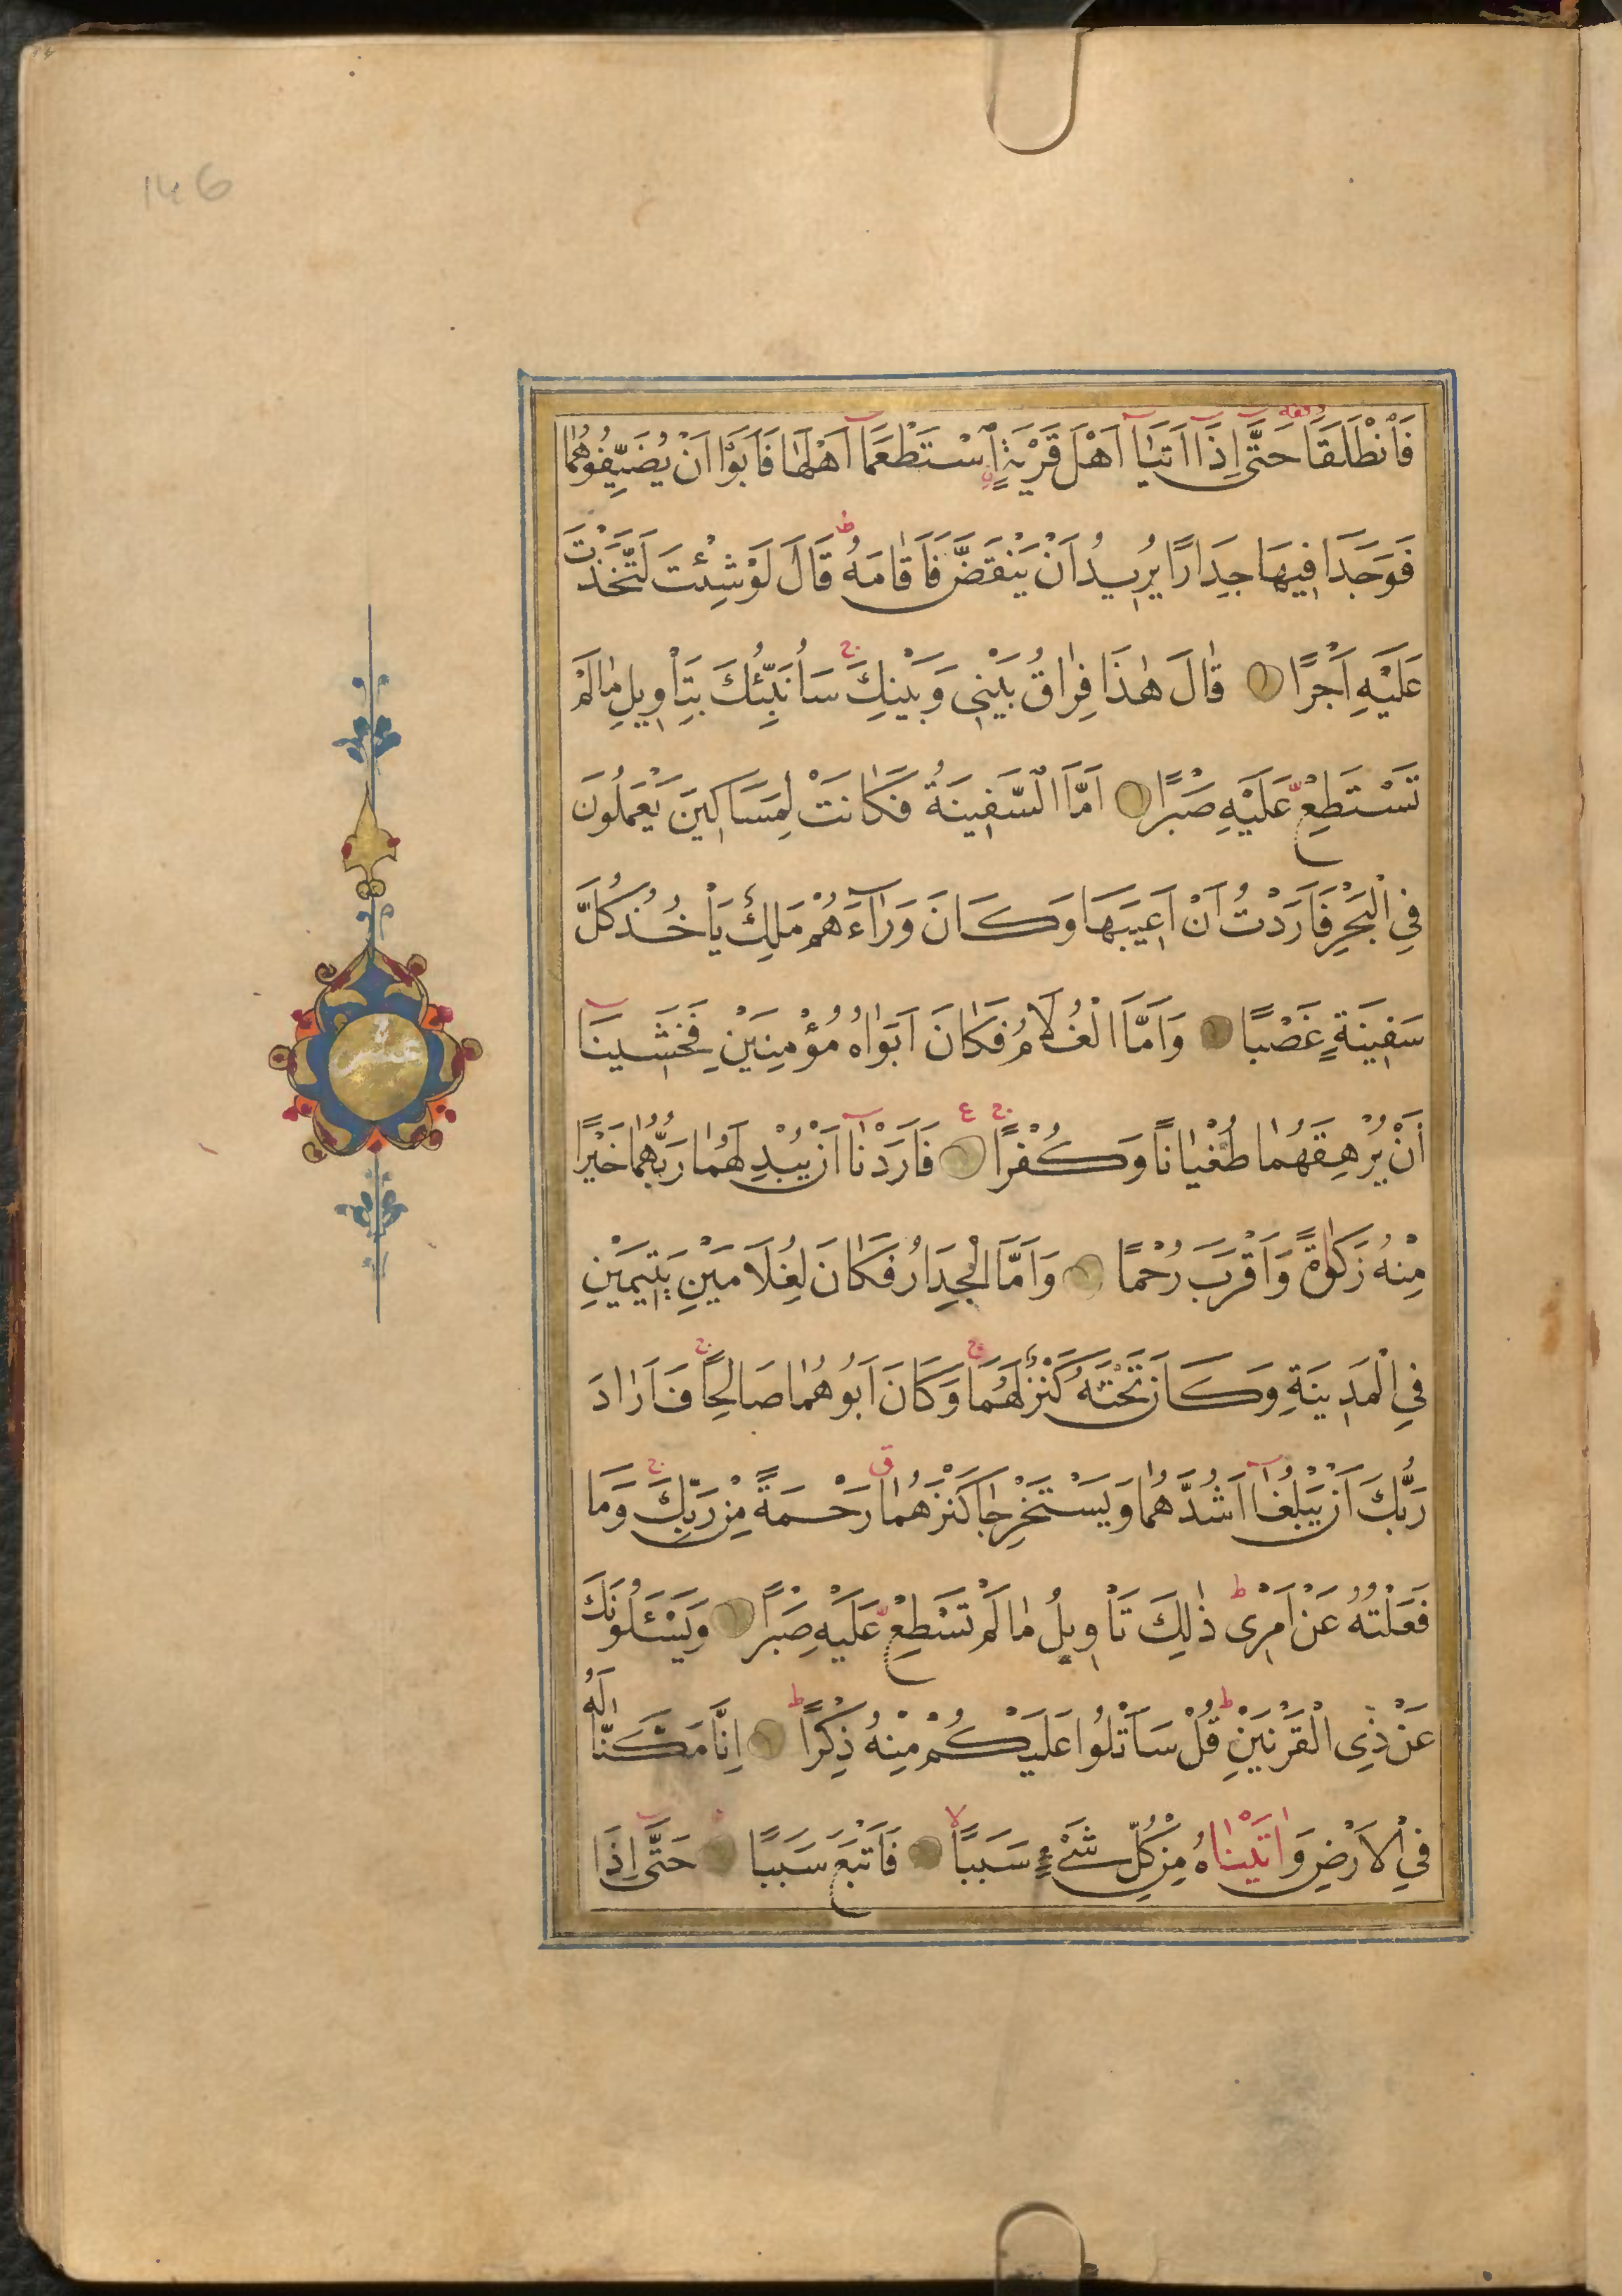 146
فَانْطَلَقَا حَتّٰى اِذَا اَتَيَا اَهْلَ قَرْيَةٍ اِسْتَطْعَمَا اَهْلَهَا فَاَبَوْا اَنْ يُضَيِّفُوهُمَا
فَوَجَدَا فِيهَا جِدَارًا يُرِيدُ اَنْ يَنْقَضَّ فَاَقَامَهُ ط قَالَ لَوْ شِئْتَ لَتَّخَذْتَ
عَلَيْهِ اَجْرًا قَالَ هٰذَا فِرَاقُ بَيْنِى وَبَيْنِكَ ج سَاُنَبِّئُكَ بِتَاْوِيلِ مَا لَمْ
تَسْتَطِعْ عَلَيْهِ صَبْرًا اَمَّا السَّفِينَةُ فَكَانَتْ لِمَسَاكِينَ يَعْمَلُونَ
فِي الْبَحْرِ فَاَرَدْتُ اَنْ اَعِيبَهَا وَكَانَ وَرَآءَهُمْ مَلِكٌ يَاْخُذُ كُلَّ
سَفِينَةٍ غَصْبًا وَاَمَّا الْغُلَامُ فَكَانَ اَبَوَاهُ مُؤْمِنَيْنِ فَخَشِينَا
اَنْ يُرْهِقَهُمَا طُغْيَانًا وَكُفْرًا ج ع فَاَرَدْنَا اَنْ يُبْدِلَهُمَا رَبُّهُمَا خَيْرًا
مِنْهُ زَكٰوةً وَاَقْرَبَ رُحْمًا وَاَمَّا الْجِدَارُ فَكَانَ لِغُلَامَيْنِ يَتِيمَيْنِ
فِي الْمَدِينَةِ وَكَانَ تَحْتَهُ كَنْزٌ لَهُمَا ج وَكَانَ اَبُوهُمَا صَالِحًا ج فَاَرَادَ
رَبُّكَ اَنْ يَبْلُغَا اَشُدَّهُمَا وَيَسْتَخْرِجَا كَنْزَهُمَا ق رَحْمَةً مِنْ رَبِّكَ ج وَمَا
فَعَلْتُهُ عَنْ اَمْرِى ط ذٰلِكَ تَاْوِيلُ مَا لَمْ تَسْطِعْ عَلَيْهِ صَبْرًا وَيَسْـَٔلُونَكَ
عَنْ ذِى الْقَرْنَيْنِ ط قُلْ سَاَتْلُوا عَلَيْكُمْ مِنْهُ ذِكْرًا ط اِنَّا مَكَّنَّا لَهُ
فِي الْاَرْضِ وَاٰتَيْنَاهُ مِنْ كُلِّ شَىْءٍ سَبَبًا لا فَاَتْبَعَ سَبَبًا حَتّٰى اِذَا
عشر